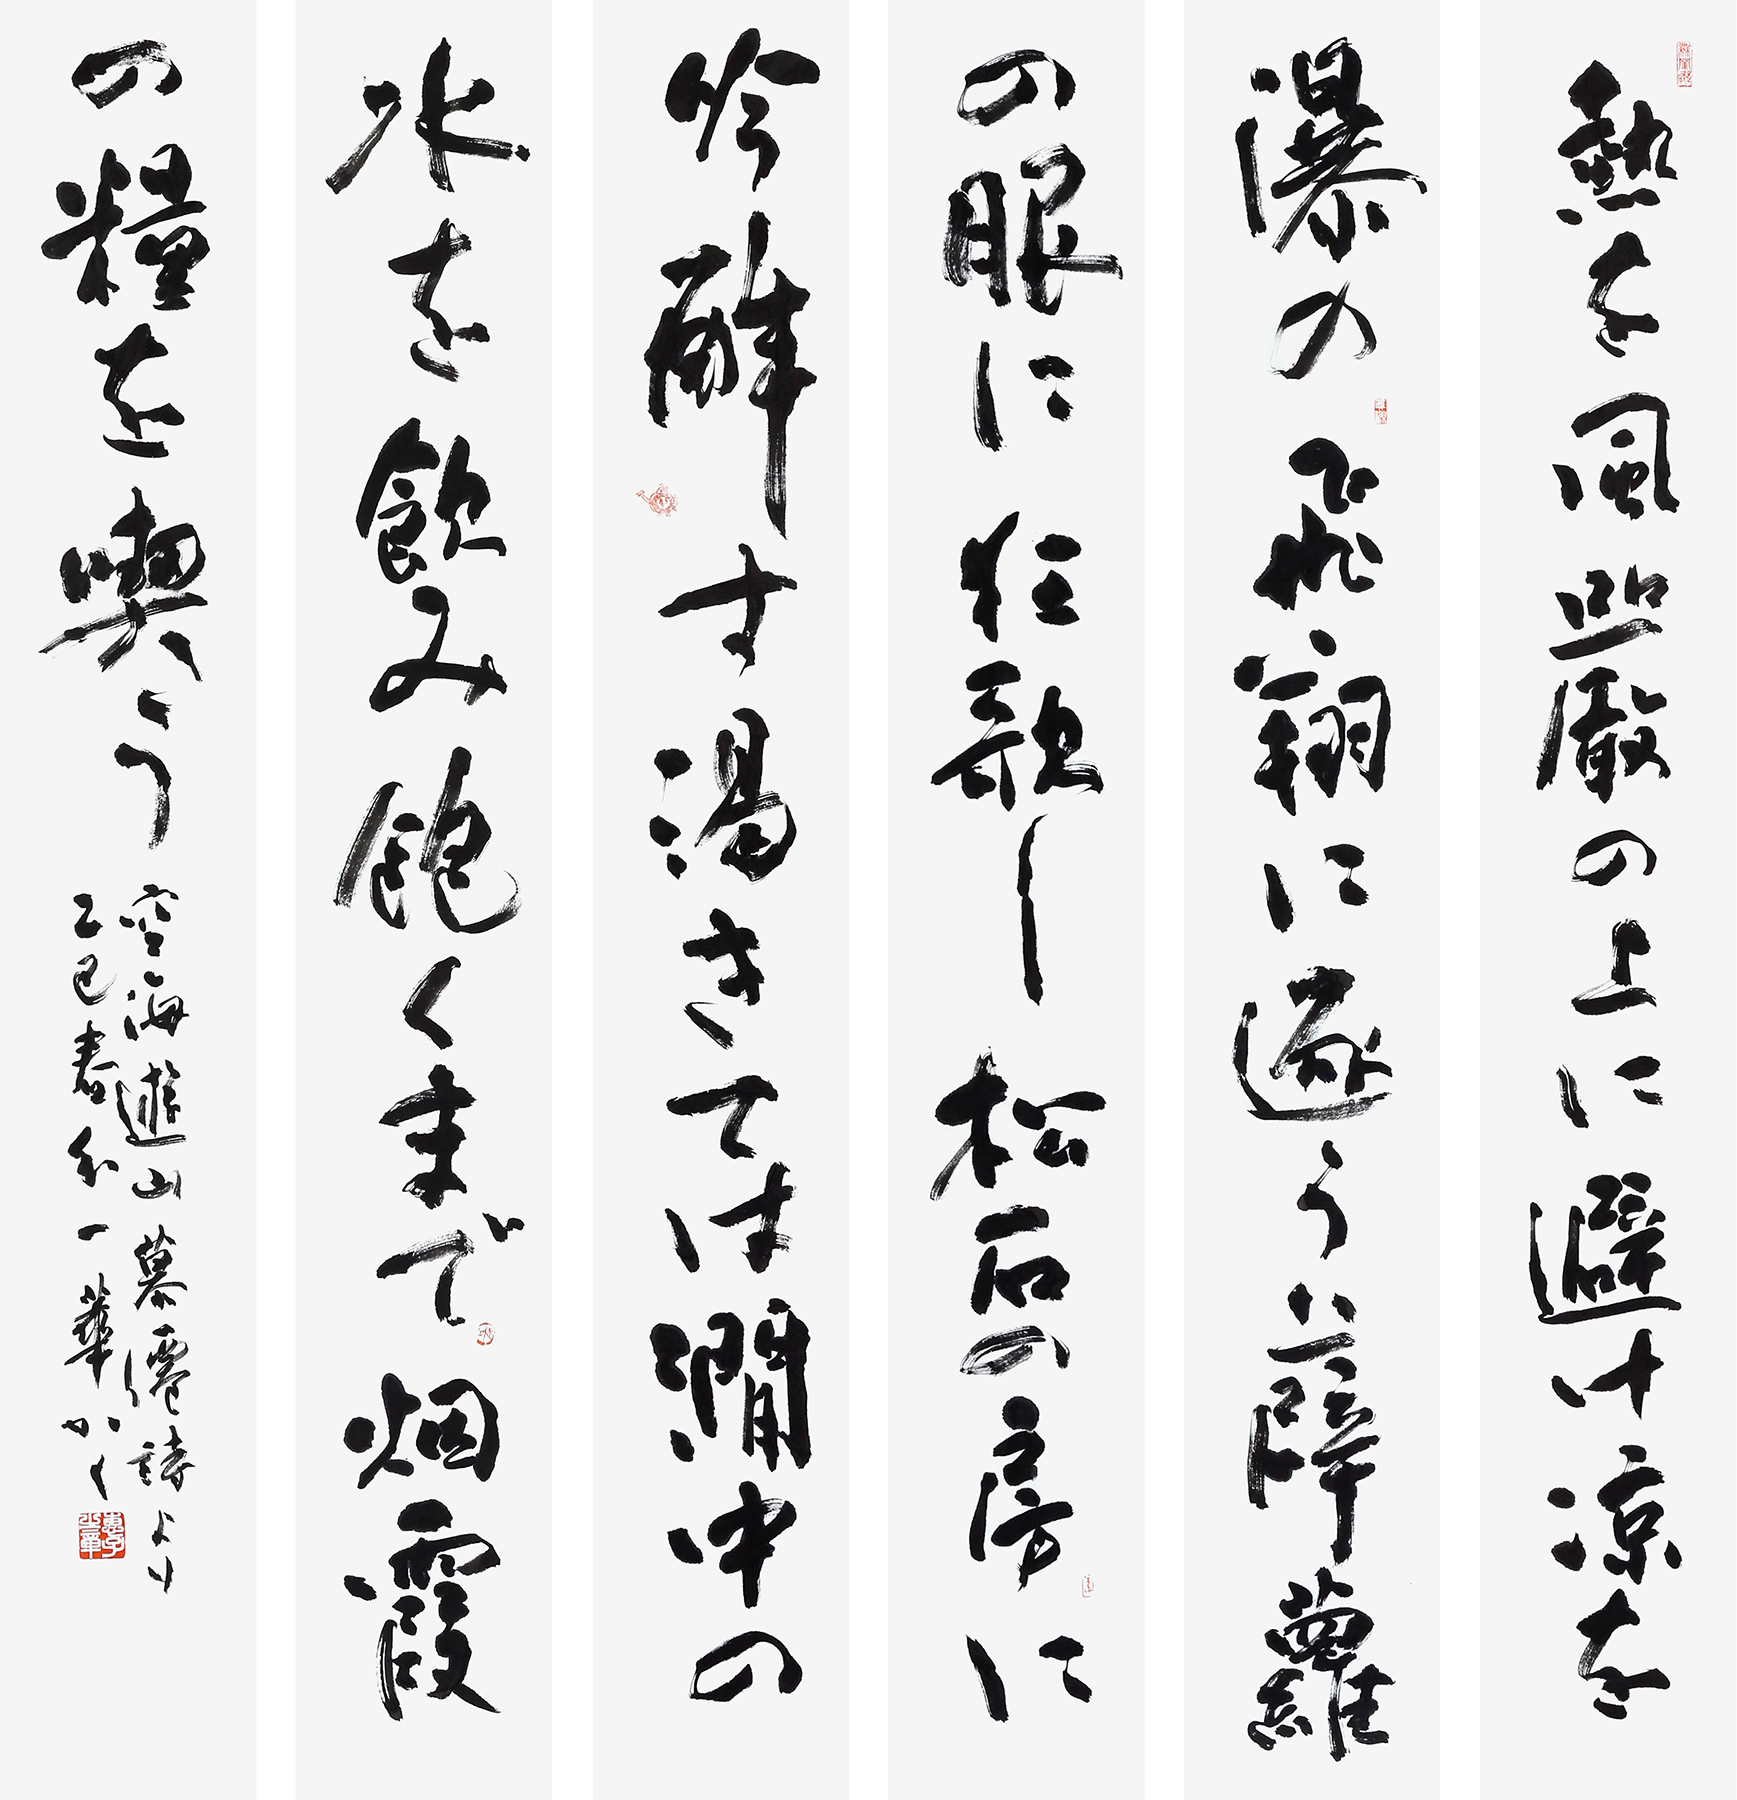 熱を風巖の上に避け涼を
瀑の飛翔に逐う薜蘿
の眼に狂歌し松石の房に
吟酔す渇きては澗中の
水を飲み飽くまで烟霞
の糧を喫う
空海遊山慕僊詩より
乙巳春分一華かく